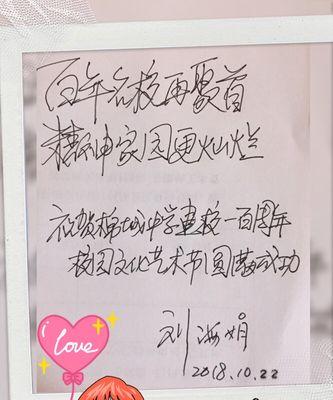 百年名校再聚首
精神家园更灿烂
祝贺棉城中学建校一百周年
校园文化艺术节圆满成功
刘海娟
2018.10.22
i
love